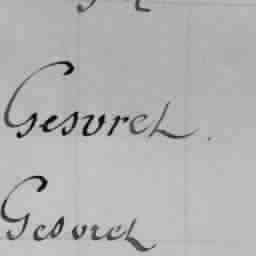 Gesvret.
Gesvret